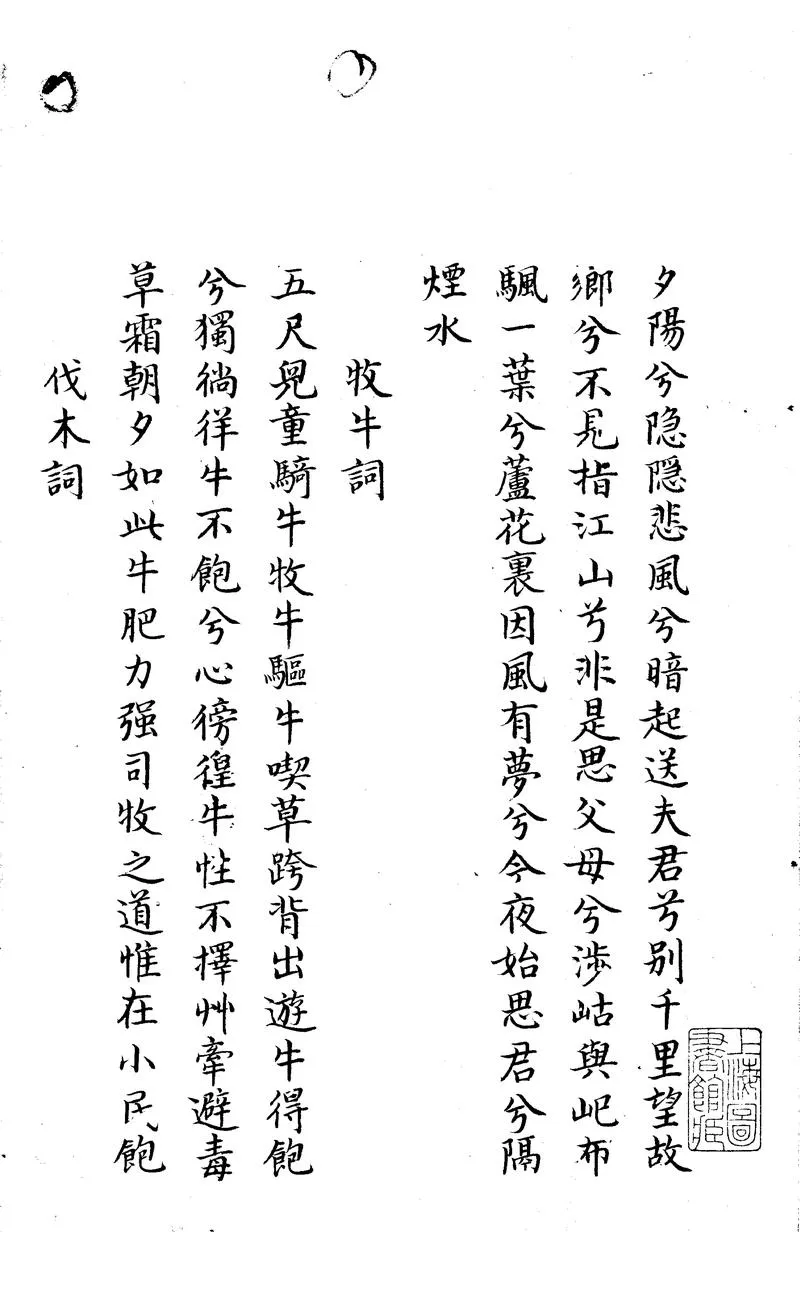 夕陽兮隐隠悲風兮暗起送夫君兮别千里望故
鄉兮不見指江山兮非是思父母兮渉岵與屺布
颿一葉兮蘆花裏因風有夢兮今夜始思君兮隔
煙水
牧牛詞
五尺兒童騎牛牧牛驅牛喫草跨背出遊牛得飽
兮獨徜徉牛不飽兮心徬徨牛性不擇艸牽避毒
草霜朝夕如此牛肥力强司牧之道惟在小民飽
伐木詞
上海圖
書館藏